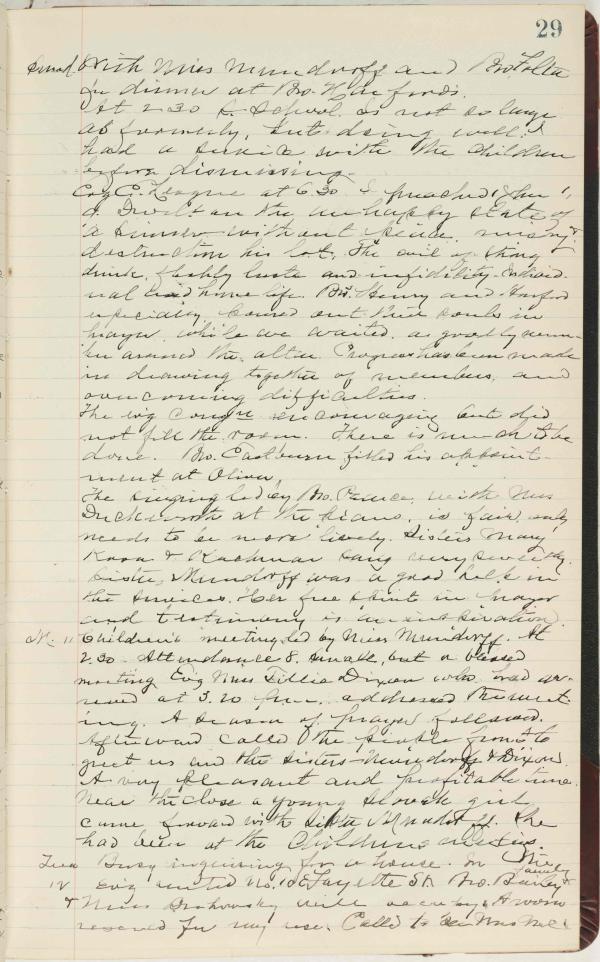 29
with Miss Mundorff and Bro.
for dinner at Bro. Hanfords.
At 2.30 S. School. Is not so large
as formerly, but doing well. I
had a service with the children
before dismissing.
Eve. E. League at 6.30 I preached
I dwelt on the unhappy state of
a sinner without peace, misery &
destruction his lot. The evil of strong
drink, fleshly lusts and infidelity. Individ
ual and home life. Bro. Henry and Hanford
especially poured out their souls in
prayer while we waited, a goodly num-
ber around the altar. Progress has been made
in drawing together of members, and
overcoming difficulties.
The evg congn encouraging but did
not fill the room. There is much to be
done. Bro. Eastburn filled his appoint-
ment at Oliver.
The singing led by Bro. Pearce, with Miss
Duckworth at the piano, is fair, only
needs to be more lively. Sisters Mary
& sang very sweetly.
Sister Mundorff was a good help in
the services. Her free spirit in prayer
and testimony is an inspiration.
M. 11 Children's meeting led by Miss Mundorff. At
2.30. Attendance 8. small, but a blessed
meeting Evg Miss Tillie Dixon who had ar-
rived at 3.20 p.m. addressed the meet-
ing. A season of prayer followed.
Afterward called the people front to
greet us and the sisters Mundorff & Dixon.
A very pleasant and profitable time.
Near the close a young Slovak girl
came forward with Sister Mundorff. She
had been at the Childrens meeting.
Tues Busy inquiring for a house. In the
family
12 evg rented No. Fayette St. Bro. &
& Miss will occupy. A room
reserved for my use. Called to see Mrs